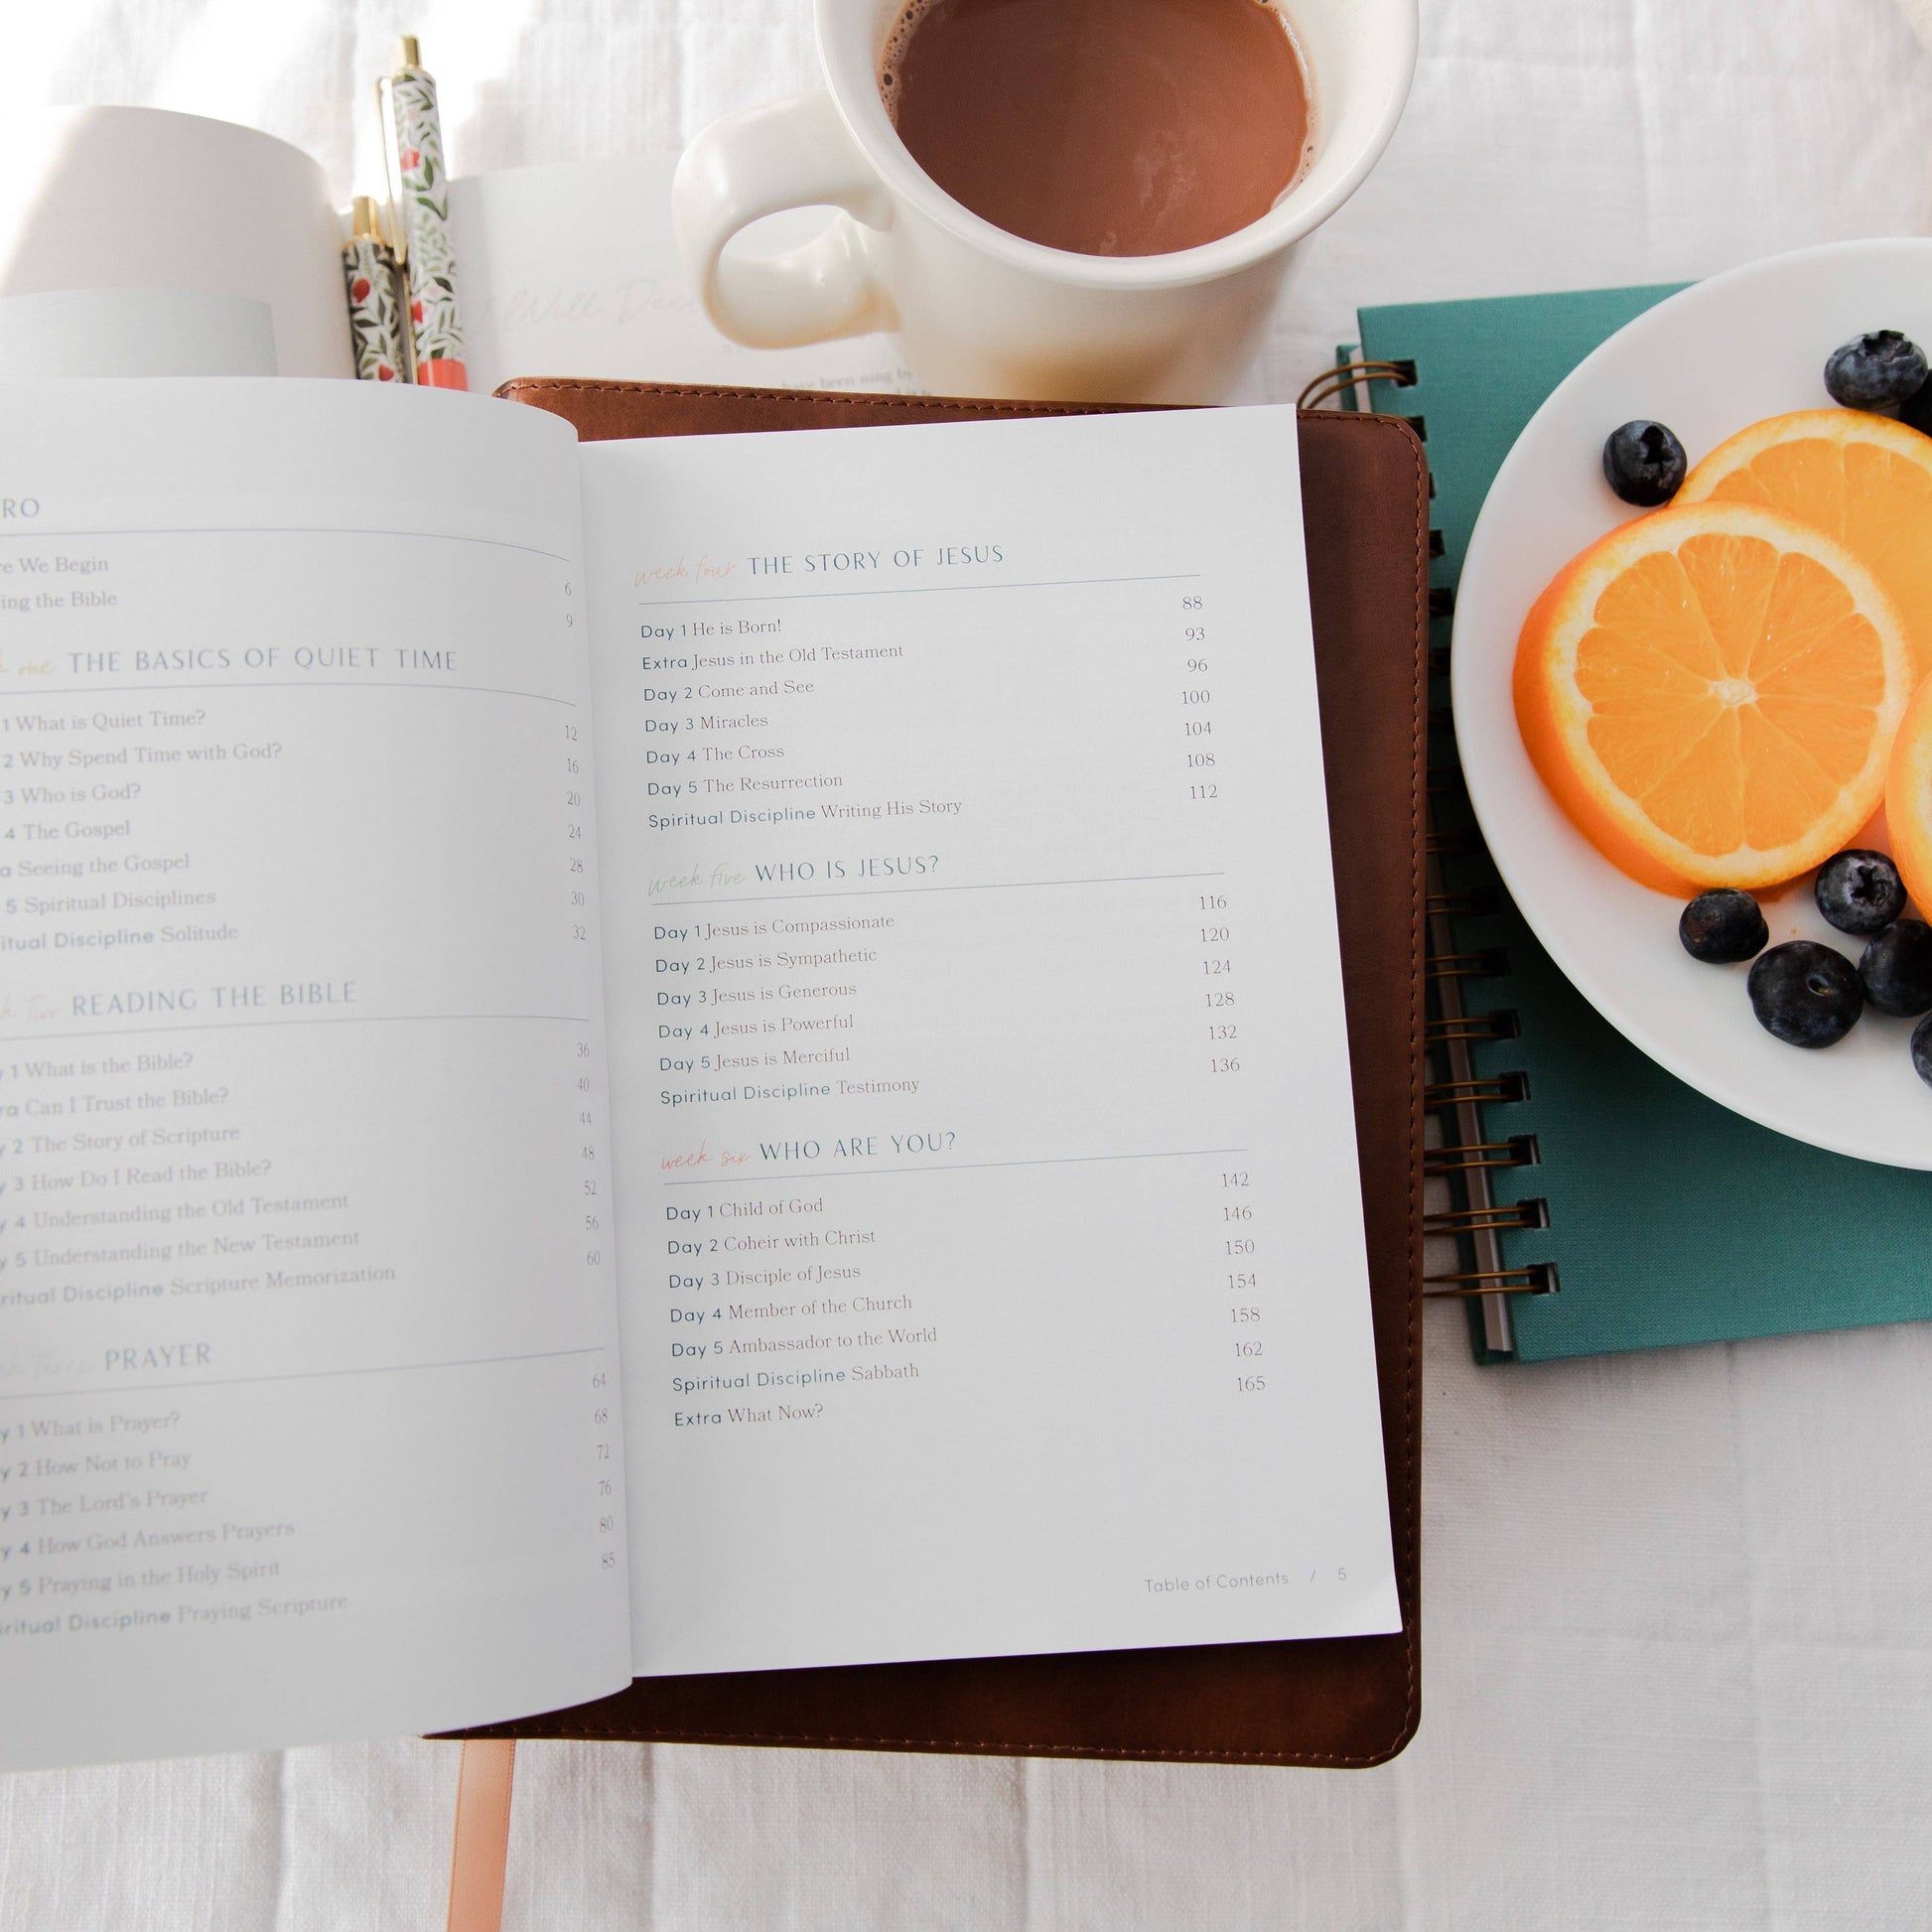 RO
re We Begin 6
ing the Bible 9
one THE BASICS OF QUIET TIME
1 What is Quiet Time? 12
2 Why Spend Time with God? 16
3 Who is God? 20
4 The Gospel 24
a Seeing the Gospel 28
5 Spiritual Disciplines 30
itual Discipline Solitude 32
k two READING THE BIBLE
y 1 What is the Bible? 36
ra Can I Trust the Bible? 40
y 2 The Story of Scripture 44
y 3 How Do I Read the Bible? 48
y 4 Understanding the Old Testament 52
y 5 Understanding the New Testament 56
ritual Discipline Scripture Memorization 60
three PRAYER
y 1 What is Prayer? 64
y 2 How Not to Pray 68
y 3 The Lord's Prayer 72
y 4 How God Answers Prayers 76
y 5 Praying in the Holy Spirit 80
iritual Discipline Praying Scripture 85
week four THE STORY OF JESUS
Day 1 He is Born! 88
Extra Jesus in the Old Testament 93
Day 2 Come and See 96
Day 3 Miracles 100
Day 4 The Cross 104
Day 5 The Resurrection 108
Spiritual Discipline Writing His Story 112
week five WHO IS JESUS?
Day 1 Jesus is Compassionate 116
Day 2 Jesus is Sympathetic 120
Day 3 Jesus is Generous 124
Day 4 Jesus is Powerful 128
Day 5 Jesus is Merciful 132
Spiritual Discipline Testimony 136
week six WHO ARE YOU?
Day 1 Child of God 142
Day 2 Coheir with Christ 146
Day 3 Disciple of Jesus 150
Day 4 Member of the Church 154
Day 5 Ambassador to the World 158
Spiritual Discipline Sabbath 162
Extra What Now? 165
Table of Contents / 5
I Will
have been sung by